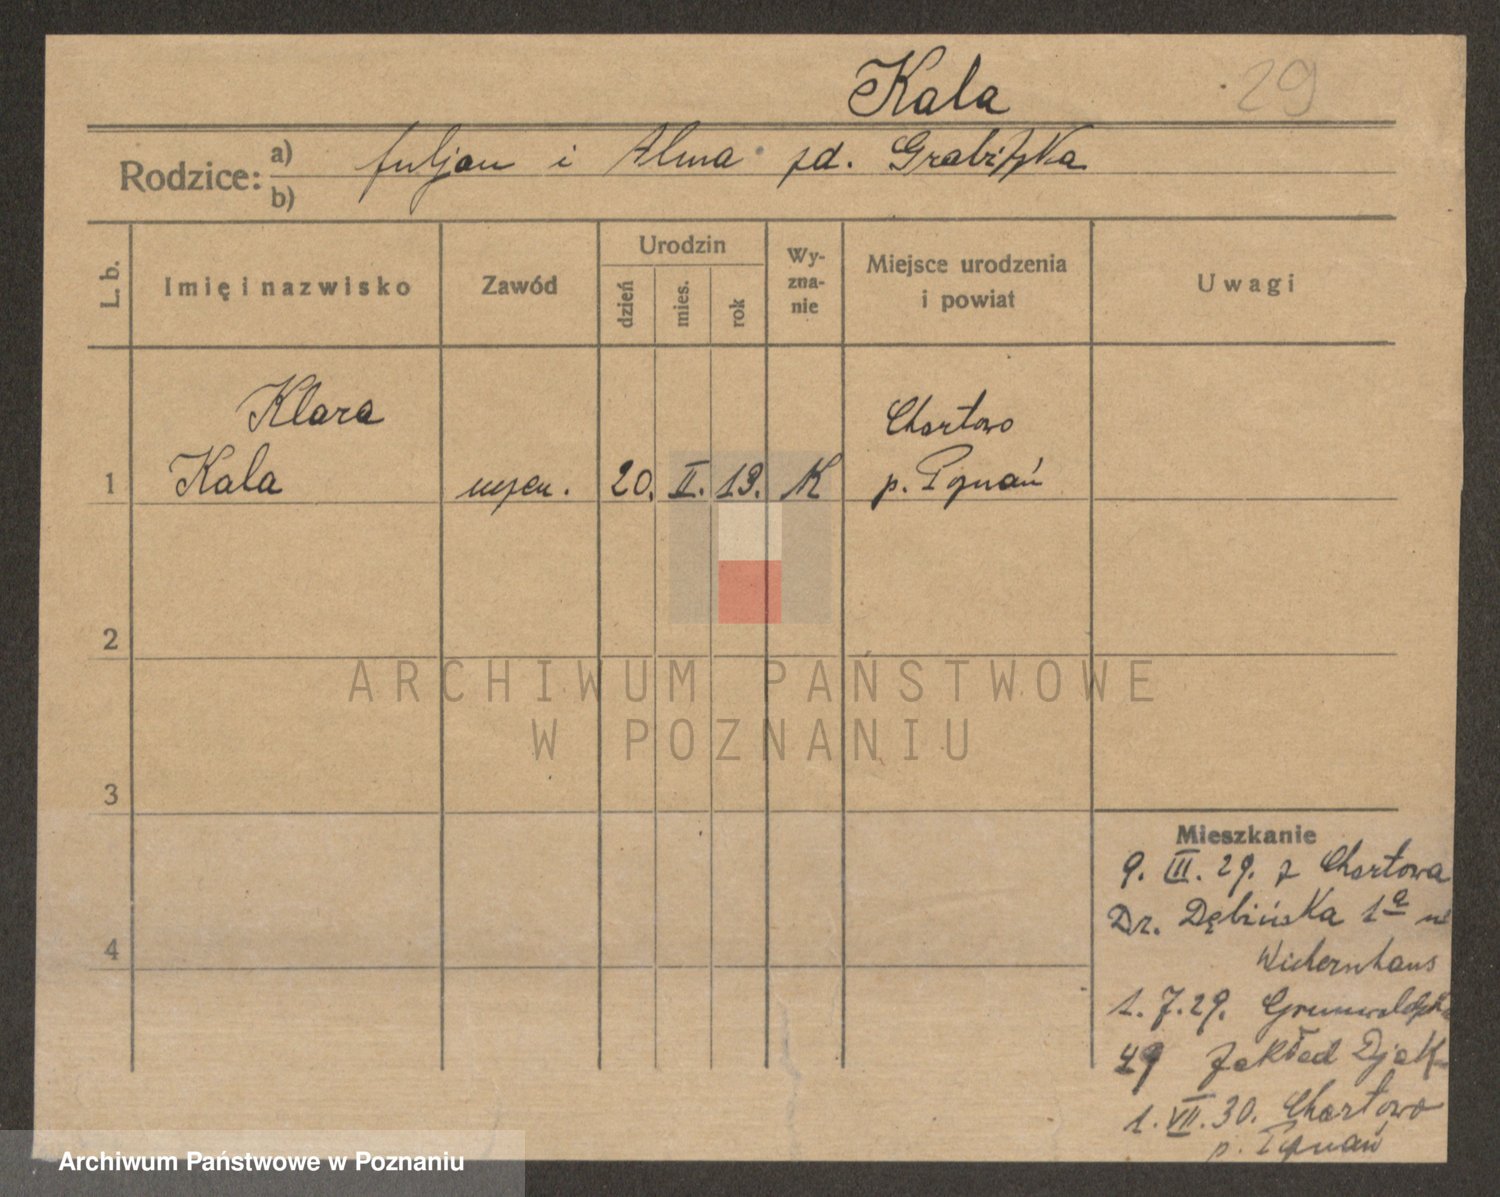 Kala
29
Rodzice: a) Juljan i Alma zd. Grabitzka
b)
L. b.
Imię i nazwisko
Zawód
Urodzin
dzień
mies.
rok
Wy-
zna-
nie
Miejsce urodzenia
i powiat
Uwagi
Klara
Chartowo
1 Kala uczen. 20. II. 13. K p. Poznań
2
ARCHIWUM PAŃSTWOWE
W POZNANIU
3
4
Mieszkanie
9. III. 29. z Chartowa
Dr. Dębińska 1a
Wichernhaus
1. 7. 29. Grunwaldzka
49 Zakład Djak
1. VII. 30. Chartowo
p. Poznań
Archiwum Państwowe w Poznaniu